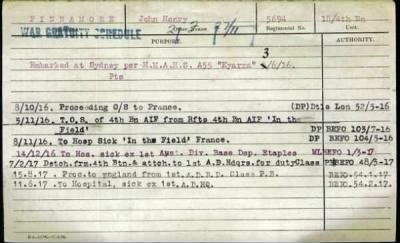 FINNAMORE John Henry 5694 18/4th Bn
WAR GRATUITY SCHEDULE
PURPOSE. Regimental No. AUTHORITY.
3
Embarked at Sydney per H.M.A.H.S. A55 "Kyarra" /6/16.
Pte
8/10/16. Proceeding O/S to France. (DP) Dtls Lon 52/5-16
5/11/16. T.O.S. of 4th Bn AIF from Rfts 4th Bn AIF 'In the
Field' DP BEFO 103/7-16
8/11/16. To Hosp Sick 'In the Field' France. DP BEFO 104/5-16
14/12/16 To Hos. sick ex 1st Aus. Div. Base Dep. Etaples ML BEFO 1/3-17
7/2/17 Detch.frm.4th Btn.& attch.to 1st A.D Hdqrs.for duty Class BEFO 48/3-17
15.8.17 Proc.to England from 1st.A.D.B.D. Class P.B. BEFO.54.1.17
11.6.17 To Hospital, sick ex 1st.A.D.HQ. BEFO.54.2.17.